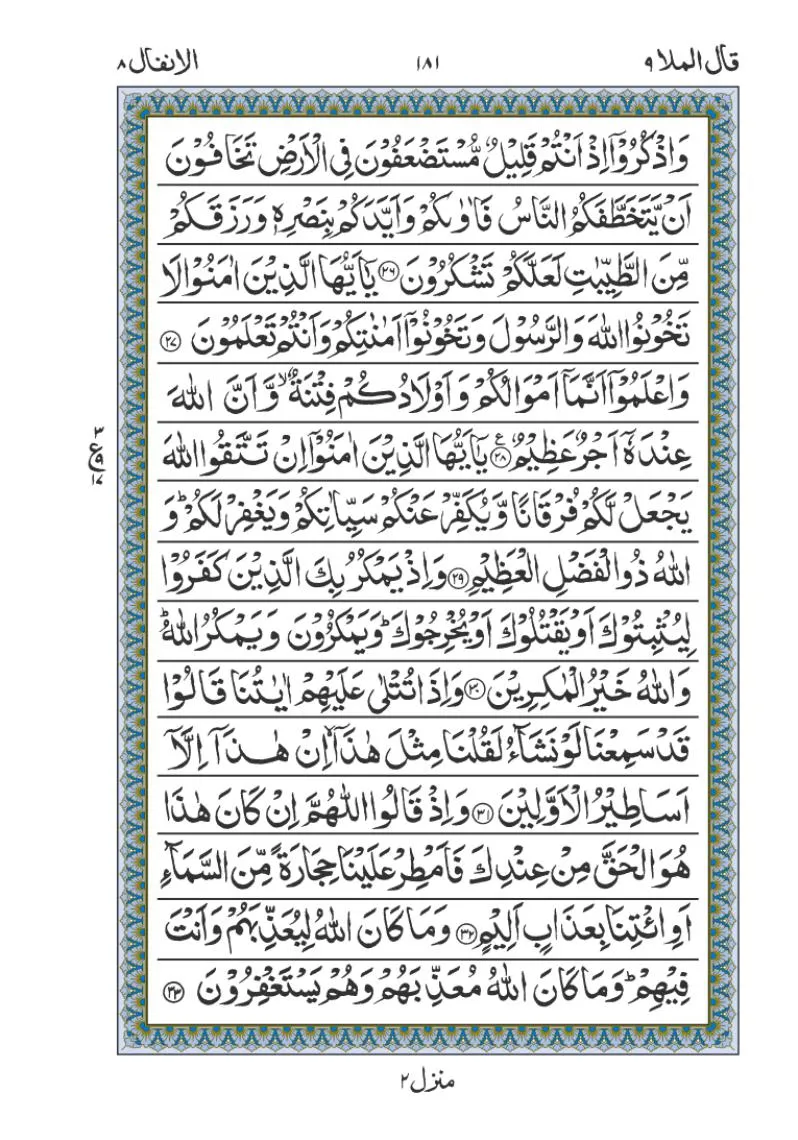 قال الملا ٩ ١٨١ الانفال ٨
وَاذْكُرُوْۤا اِذْ اَنْتُمْ قَلِيْلٌ مُّسْتَضْعَفُوْنَ فِى الْاَرْضِ تَخَافُوْنَ
اَنْ يَّتَخَطَّفَكُمُ النَّاسُ فَاٰوٰىكُمْ وَاَيَّدَكُمْ بِنَصْرِهٖ وَرَزَقَكُمْ
مِّنَ الطَّيِّبٰتِ لَعَلَّكُمْ تَشْكُرُوْنَ ﴿٢٦﴾ يٰۤاَيُّهَا الَّذِيْنَ اٰمَنُوْا لَا
تَخُوْنُوا اللّٰهَ وَالرَّسُوْلَ وَتَخُوْنُوْۤا اَمٰنٰتِكُمْ وَاَنْتُمْ تَعْلَمُوْنَ ﴿٢٧﴾
وَاعْلَمُوْۤا اَنَّمَاۤ اَمْوَالُكُمْ وَاَوْلَادُكُمْ فِتْنَةٌ ۙ وَّاَنَّ اللّٰهَ
عِنْدَهٗۤ اَجْرٌ عَظِيْمٌ ﴿٢٨﴾ ع يٰۤاَيُّهَا الَّذِيْنَ اٰمَنُوْۤا اِنْ تَتَّقُوا اللّٰهَ
٣ ع ٩ ١٧
يَجْعَلْ لَّكُمْ فُرْقَانًا وَّيُكَفِّرْ عَنْكُمْ سَيِّاٰتِكُمْ وَيَغْفِرْ لَكُمْ ؕ وَ
اللّٰهُ ذُو الْفَضْلِ الْعَظِيْمِ ﴿٢٩﴾ وَاِذْ يَمْكُرُ بِكَ الَّذِيْنَ كَفَرُوْا
لِيُثْبِتُوْكَ اَوْ يَقْتُلُوْكَ اَوْ يُخْرِجُوْكَ ؕ وَيَمْكُرُوْنَ وَيَمْكُرُ اللّٰهُ ؕ
وَاللّٰهُ خَيْرُ الْمٰكِرِيْنَ ﴿٣٠﴾ وَاِذَا تُتْلٰى عَلَيْهِمْ اٰيٰتُنَا قَالُوْا
قَدْ سَمِعْنَا لَوْ نَشَآءُ لَقُلْنَا مِثْلَ هٰذَاۤ ۙ اِنْ هٰذَاۤ اِلَّاۤ
اَسَاطِيْرُ الْاَوَّلِيْنَ ﴿٣١﴾ وَاِذْ قَالُوا اللّٰهُمَّ اِنْ كَانَ هٰذَا
هُوَ الْحَقَّ مِنْ عِنْدِكَ فَاَمْطِرْ عَلَيْنَا حِجَارَةً مِّنَ السَّمَآءِ
اَوِ ائْتِنَا بِعَذَابٍ اَلِيْمٍ ﴿٣٢﴾ وَمَا كَانَ اللّٰهُ لِيُعَذِّبَهُمْ وَاَنْتَ
فِيْهِمْ ؕ وَمَا كَانَ اللّٰهُ مُعَذِّبَهُمْ وَهُمْ يَسْتَغْفِرُوْنَ ﴿٣٣﴾
منزل ٢